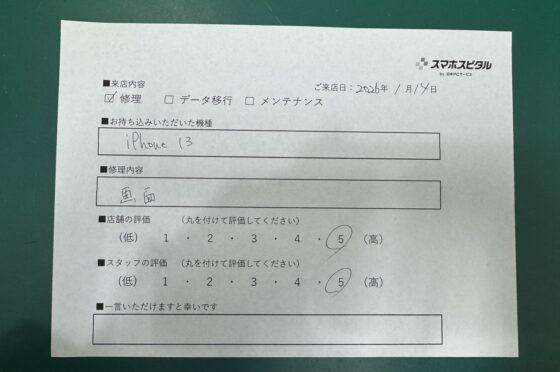 スマホスピタル
by 日本PCサービス
■来店内容
ご来店日：2026年 1月14日
☑ 修理 □ データ移行 □ メンテナンス
■お持ち込みいただいた機種
iPhone 13
■修理内容
画面
■店舗の評価 （丸を付けて評価してください）
（低） 1 ・ 2 ・ 3 ・ 4 ・ 5 （高）
■スタッフの評価 （丸を付けて評価してください）
（低） 1 ・ 2 ・ 3 ・ 4 ・ 5 （高）
■一言いただけますと幸いです